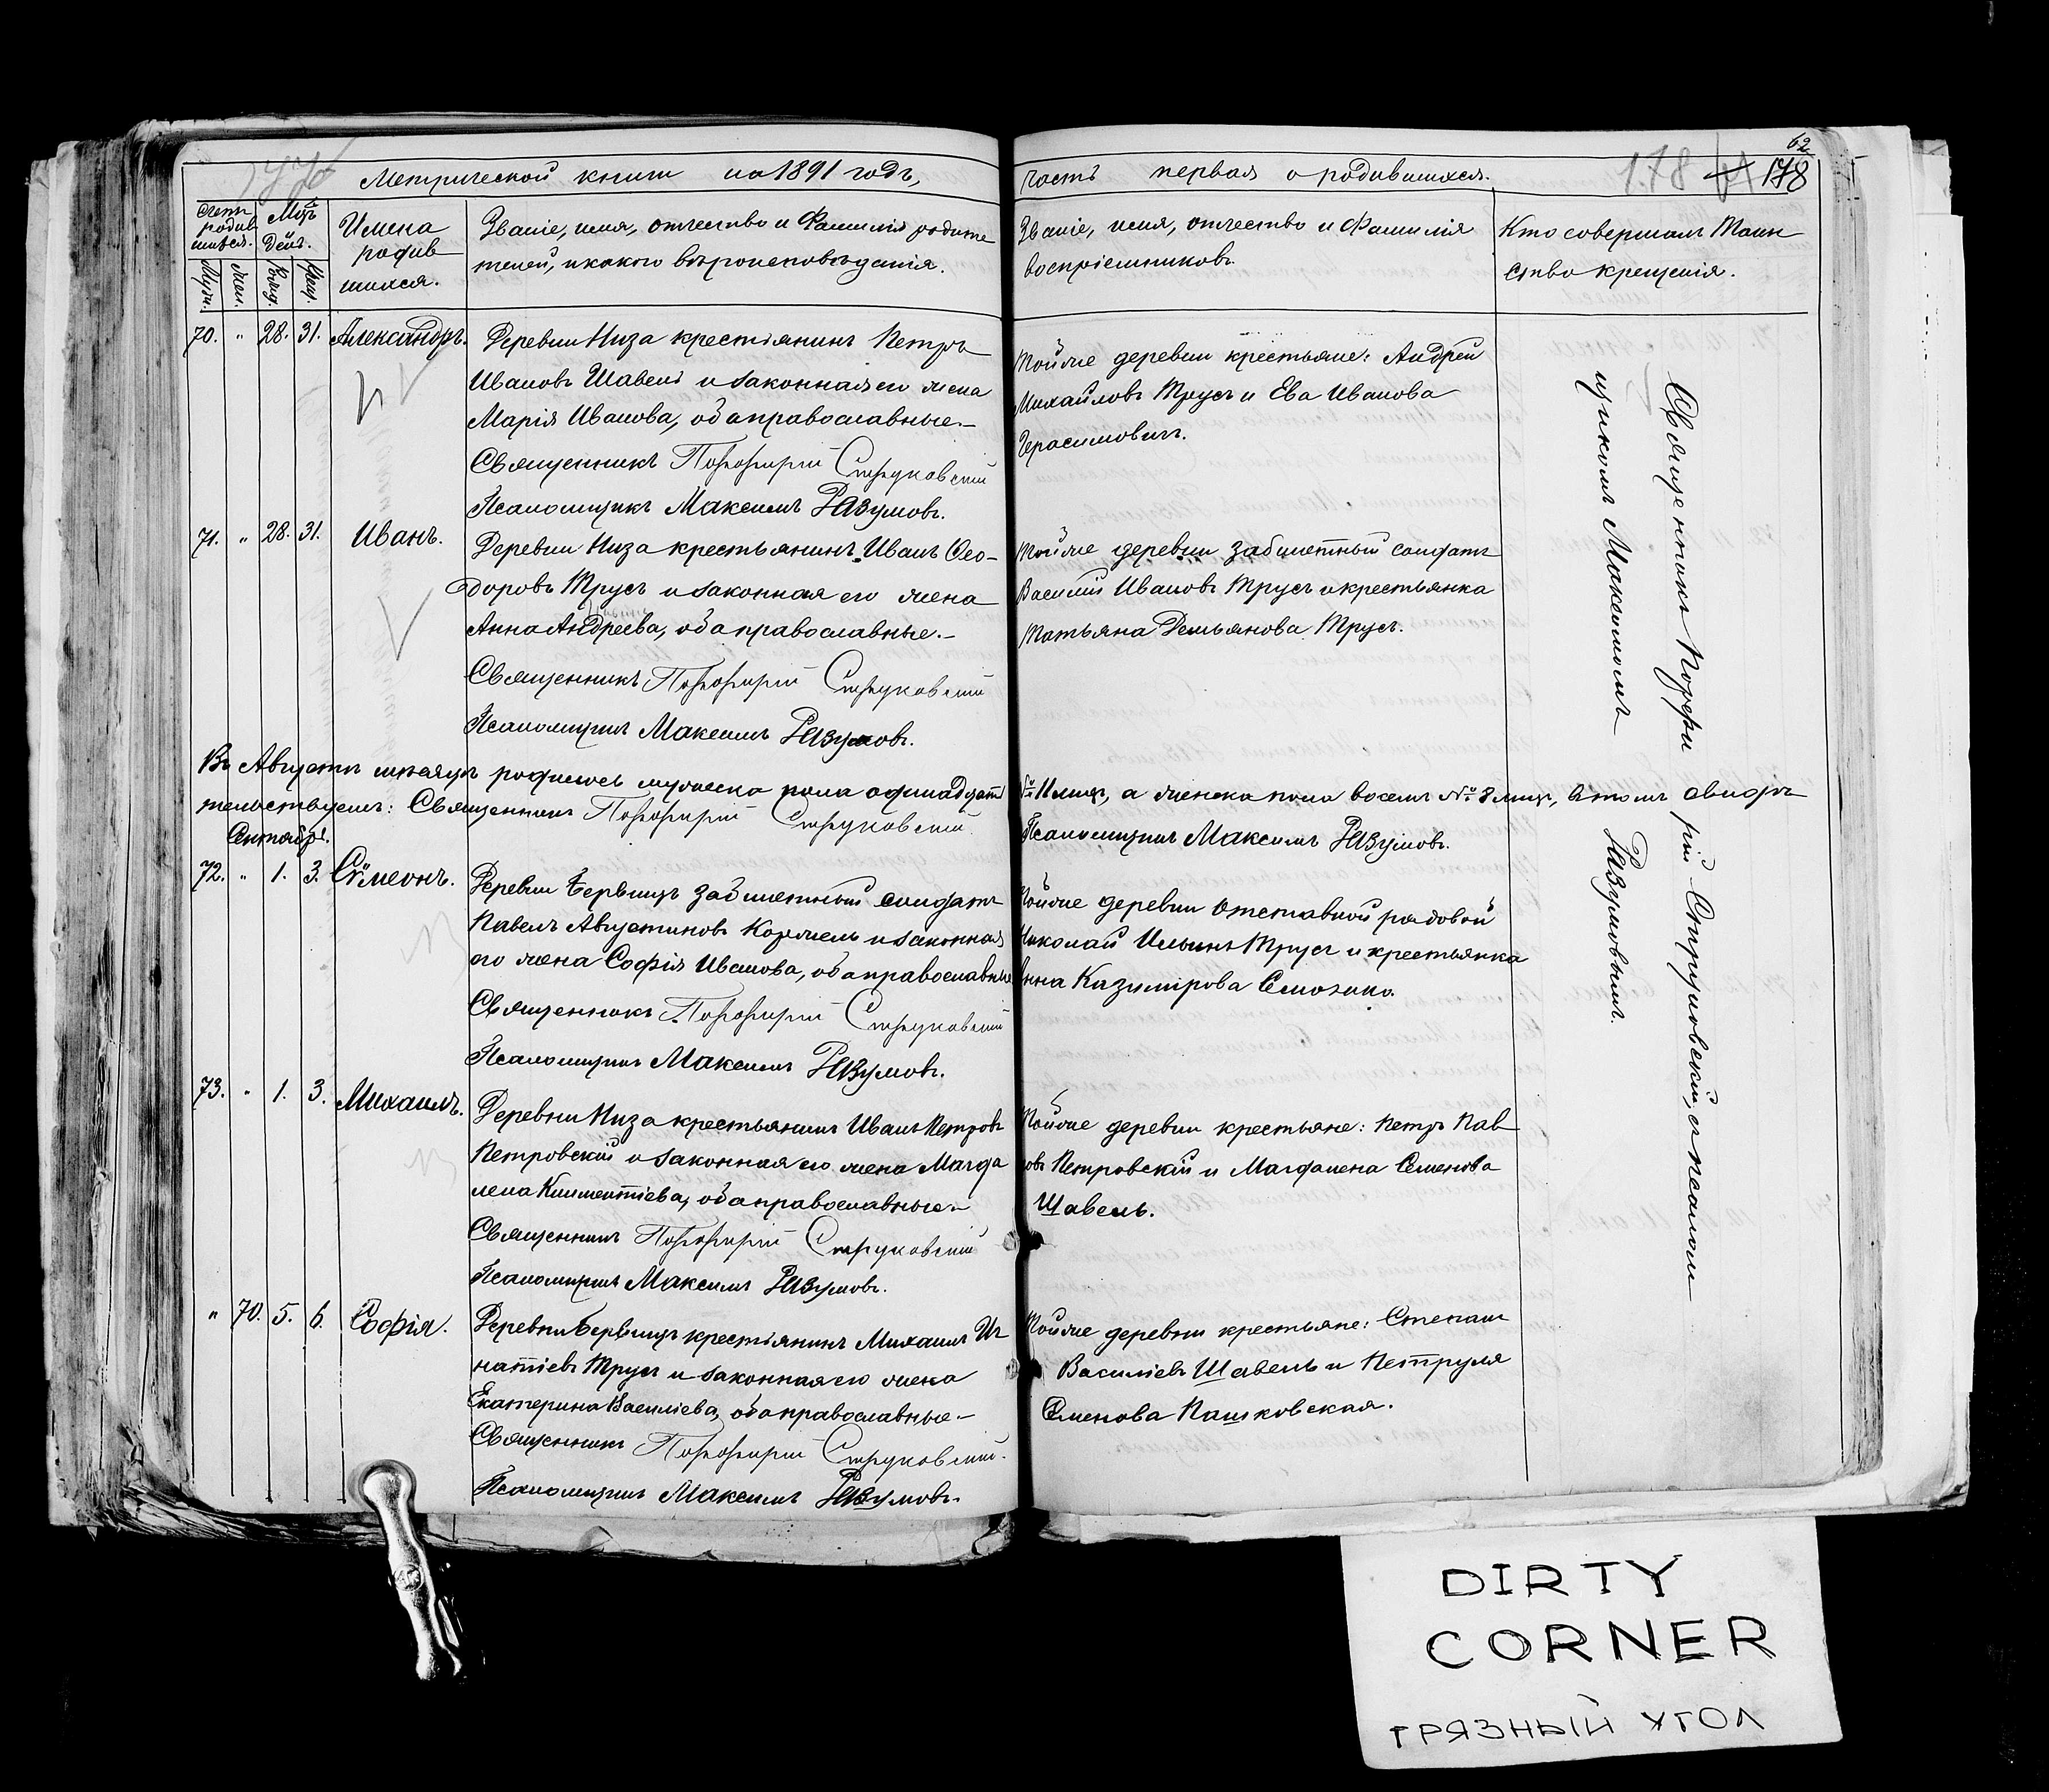 62
178 178
Метрической книги на 1891 годъ, часть первая о родившихся.
Счетъ родившихся. Мцъ День. Имена родившихся.
Муж. Жен. Рожд. Крещ.
Званіе, имя, отчество и Фамилія родите
телей, и какого вѣроисповѣданія.
Званіе, имя, отчество и Фамилія
воспріемниковъ.
Кто совершалъ Таин
ство крещенія.
70. " 28. 31. Александръ.
Деревни Низа крестіянинъ Петръ
Ивановъ Шавель и законная его жена
Марія Иванова, оба православные.—
Священникъ Порфирій Струковскій
Псаломщикъ Максимъ Разумовъ.
Тойже деревни крестьяне: Андрей
Михайловъ Трусъ и Ева Иванова
Герасимовичъ.
71. " 28. 31. Иванъ.
Деревни Низа крестьянинъ Иванъ Ѳео-
доровъ Трусъ и законная его жена
Анна Андреева, оба православные.—
Священникъ Порфирій Струковскій
Псаломщикъ Максимъ Разумовъ.
Тойже деревни забилетный солдатъ
Василій Ивановъ Трусъ и крестьянка
Татьяна Демьянова Трусъ.
Въ Августѣ мѣсяцѣ родилось мужеска пола одинадцать № 11 муж, а женска пола восемь № 8 , въ томъ свидѣ
тельствуемъ: Священникъ Порфирій Струковскій. Псаломщикъ Максимъ Разумовъ.
Сентябрь.
72. " 1. 3. Сѵмеонъ.
Деревни забилетный солдатъ
Павелъ Августиновъ Кормель и законная
его жена Софія Иванова, оба православные
Священникъ Порфирій Струковскій
Псаломщикъ Максимъ Разумовъ.
Тойже деревни отставной рядовой
Николай Ильинъ Трусъ и крестьянка
Анна Казимірова
73. " 1. 3. Михаилъ.
Деревни Низа крестьянинъ Иванъ Петровъ
Петровскій и законная его жена Магда
лена Климентіева, оба православные.—
Священникъ Порфирій Струковскій
Псаломщикъ Максимъ Разумовъ.
Тойже деревни крестьяне: Петръ Пав
ловъ Петровскій и Магдалена Семенова
Шавель.
" 70. 5. 6. Софія.
Деревни крестіянинъ Михаилъ Иг
натіевъ Трусъ и законная его жена
Екатерина Василіева, оба православные.—
Священникъ Порфирій Струковскій.
Псаломщикъ Максимъ Разумовъ.
Тойже деревни крестьяне: Степанъ
Василіевъ Шавель и Петруля
Семенова Пашковская.
Священникъ Порфирій Струковскій, съ псалом
щикомъ Максимомъ Разумовымъ.
DIRTY
CORNER
ГРЯЗНЫЙ УГОЛ